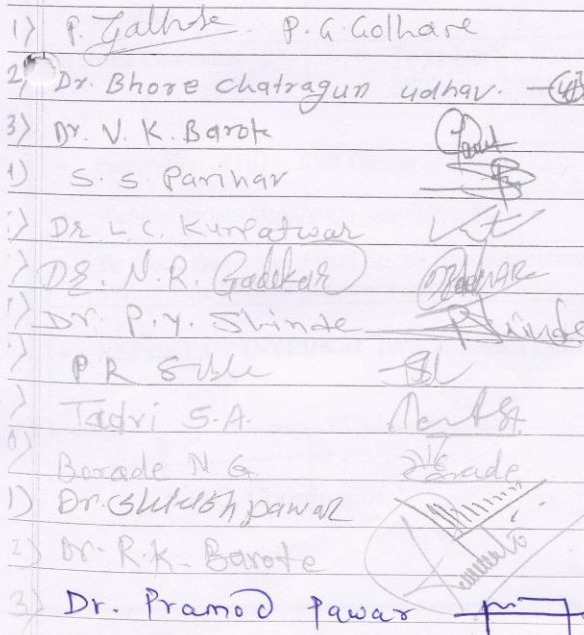 1) P. Galhare P. G. Golhare
2) Dr. Bhore chatragun udhav.
3) Dr. V. K. Barote
) S. S. Parihar
) Dr. L. C. Kurpatwar
) DR. N. R. Gadekar
) Dr. P. Y. Shinde Shinde
) P R Sible
) Tadvi S. A.
) Borade N G
1) Dr. pawar
2) Dr. R. K. Barote
3) Dr. Pramod Pawar